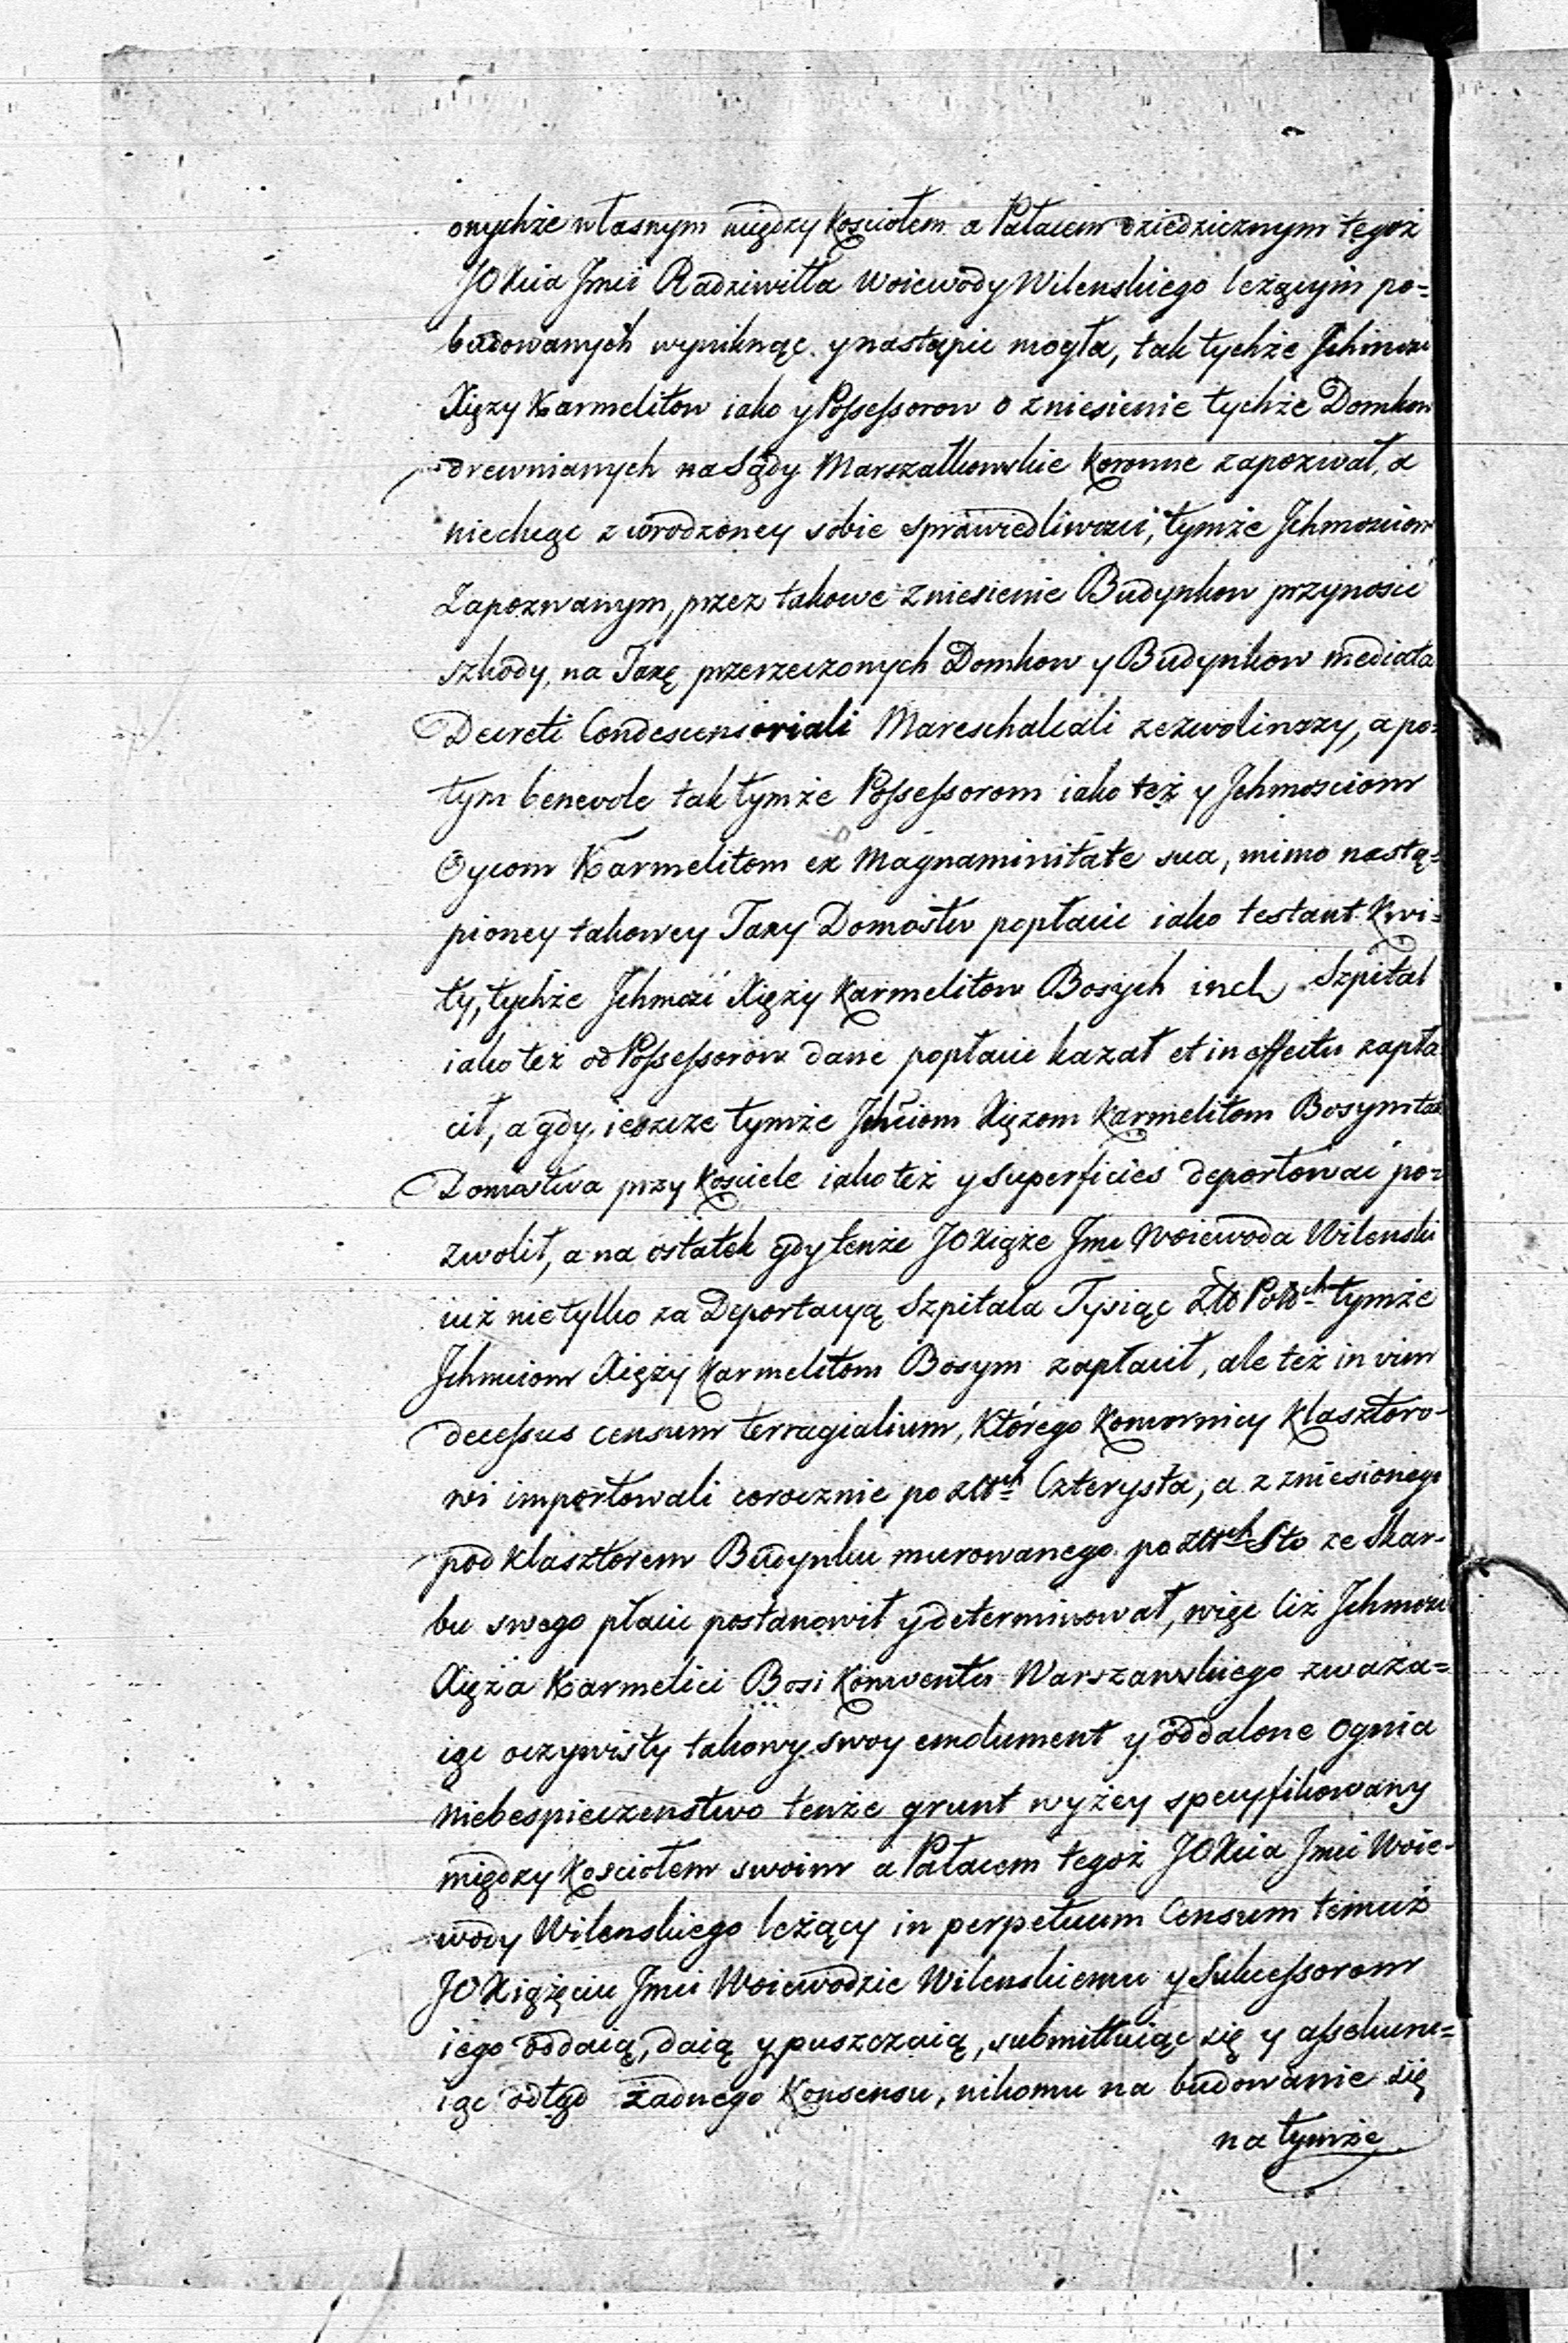 onychże własnym między Kościołem a Pałacem dziedzicznym tegoż
JOXcia Jmci Radziwiłła Woiewody Wilenskiego leżącym po=
budowanych wyniknąć y nastąpic mogła, tak tychże Jchmczi
Xięzy Karmelitow iako y Possessorow o zniesienie tychże Domkow
drewnianych na Sądy Marszałkowskie Koronne zapozwał, a
niechcąc z wrodzoney sobie sprawiedliwości, tymże Jchmosciom
Zapozwanym, przez takowe zniesienie Budynkow przynosic
szkody, na Taxę przerzeczonych Domkow y Budynkow mediata
Decreti Condescensoriali Mareschalcali zezwoliwszy, a po=
tym benevole tak tymże Possessorom iako też y Jchmosciom
Oycom Karmelitom ex Magnaminitate sua, mimo nastą=
pioney takowey Taxy Domostw popłacic iako testant Kwi=
ty, tychże Jchmczi Xięży Karmelitow Bosych incl. Szpital
iako też od Possessorow dane popłacic kazał et in effectu zapła
cił, a gdy ieszcze tymże Jchciom Xięzom Karmelitom Bosym tak
Domostwa przy Kosciele iako też y Superficies deportowac po=
zwolił, a na ostatek gdy tenże JOXiąże Jmc Woiewoda Wilenski
iuż nie tylko za Deportacyą Szpitala Tysiąc Zło Polch tymże
Jchmciom Xięży Karmelitom Bosym zapłacił, ale też in vim
decessus censum terragialium, Którego Komornicy Klasztoro-
wi importowali corocznie po złłch Czterysta, a z zniesionego
pod Klasztorem Budynku murowanego po złłch Sto ze Skar-
bu swego płacic postanowił y determinował, więc Ciż Jchmczi
Xięża Karmelici Bosi Konwentu Warszawskiego zważa=
iąc oczywisty takowy swoy emolument y oddalone Ognia
niebespieczenstwo tenże grunt wyżey specyfikowany
między Kosciołem swoim a Pałacem tegoż JOXcia Jmci Woie-
wody Wilenskiego leżący in perpetuum Censum temuż
JOXiążęciu Jmci Woiewodzie Wilenskiemu y Sukcessorom
iego oddaią, daią y puszczaią, submittuiąc się y assekuru=
iąc odtąd żadnego Konsensu, nikomu na budowanie się
na tymże